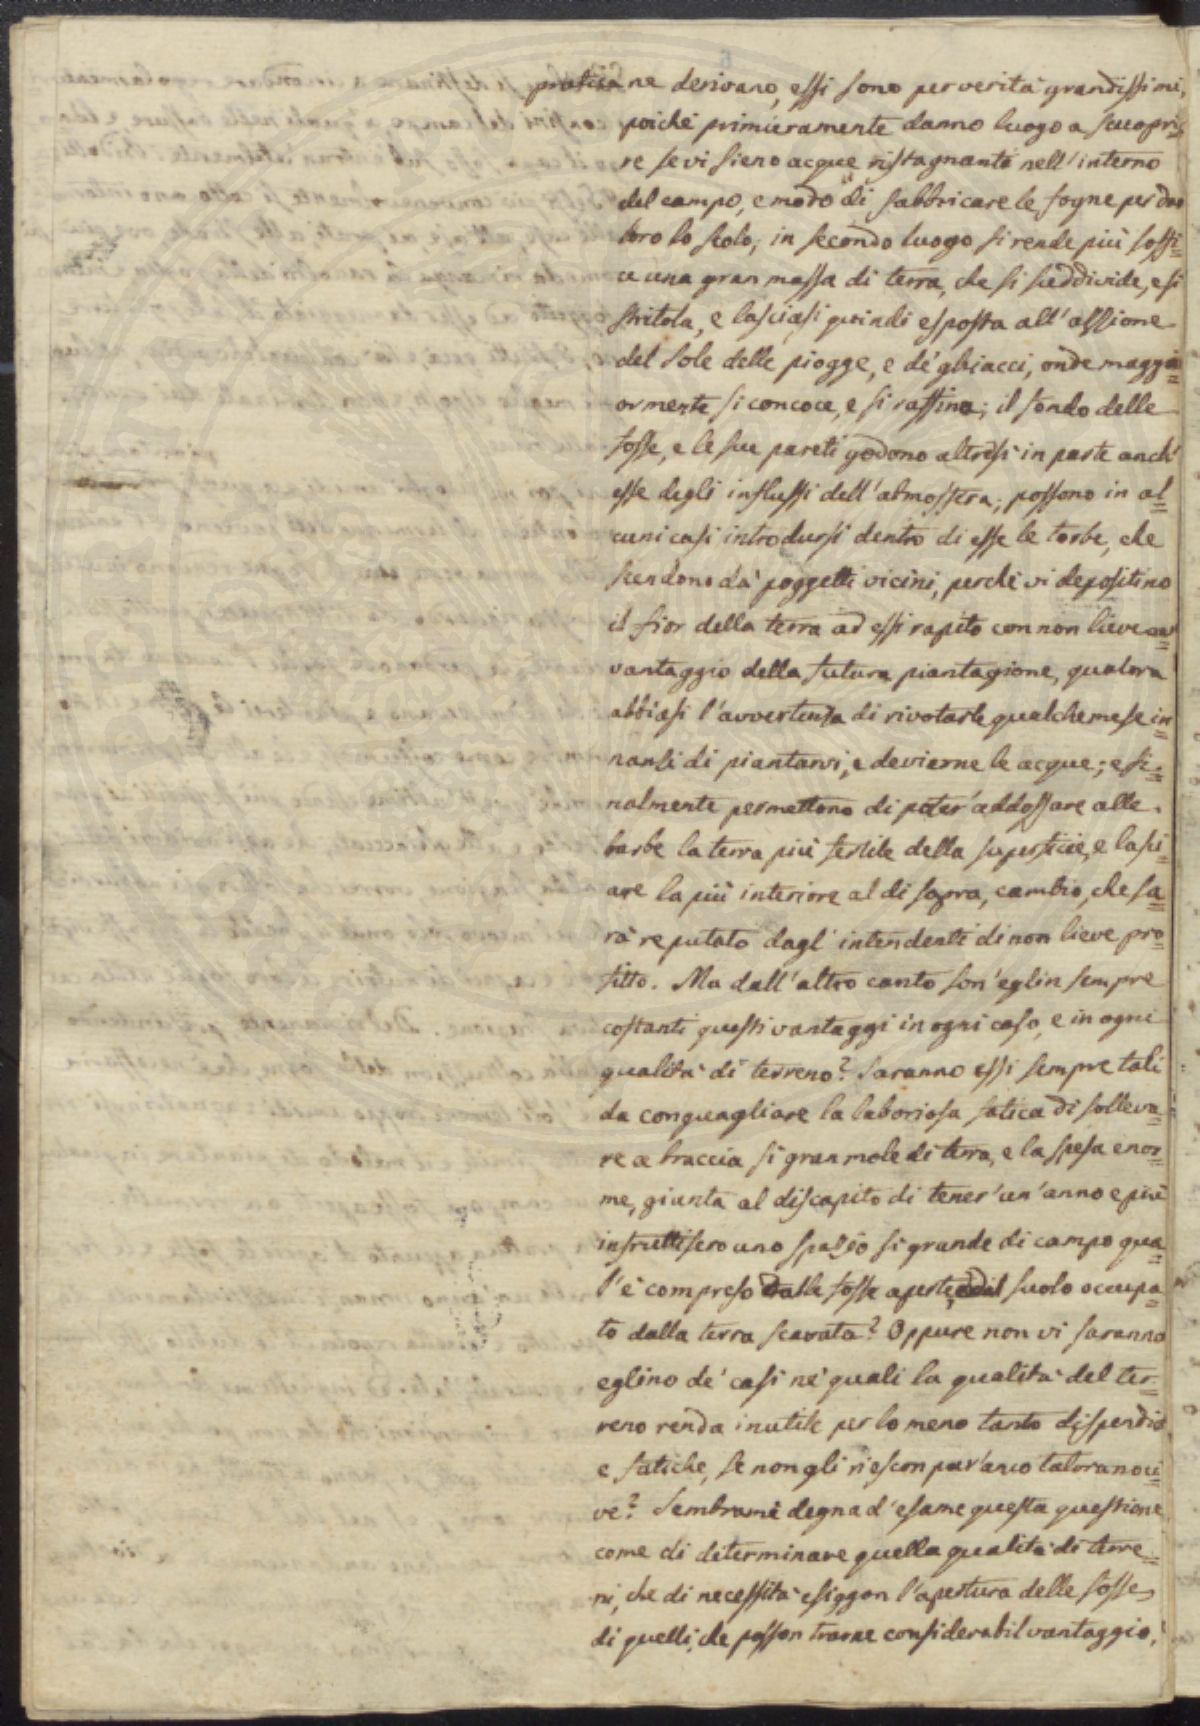 pratica ne derivano, essi sono per verità grandissimi,
poichè primieramente danno luogo a scuopri=
re se vi sieno acque ristagnanti nell'interno
del campo, e modo di fabbricare le fogne per dar
loro lo scolo; in secondo luogo si rende più soffi=
ce una gran massa di terra, che si suddivide, e si
stritola, e lasciasi quindi esposta all'assione
del sole delle piogge, e de' ghiacci, onde maggi=
ormente si concoce, e si raffina; il fondo delle
fosse, e le sue pareti godono altresi in parte anch'
esse degli influssi dell'atmosfera; possono in al=
cuni casi introdursi dentro di esse le torbe, che
scendono da' poggetti vicini, perchè vi depositino
il fior della terra ad essi rapito con non lieve av=
vantaggio della futura piantagione, qualora
abbiasi l'avvertenza di rivotarle qualche mese in=
nanzi di piantarvi, e deviarne le acque; e fi=
nalmente permettono di poter' addossare alle
barbe la terra più fertile della superficie, e lasci=
are la più interiore al di sopra, cambio, che sa=
rà reputato dagl' intendenti di non lieve pro=
fitto. Ma dall'altro canto son' eglin sempre
costanti questi vantaggi in ogni caso, e in ogni
qualità di terreno? Saranno essi sempre tali
da conguagliare la laboriosa fatica di solleva=
re a braccia si gran mole di terra, e la spesa enor=
me, giunta al discapito di tener' un' anno e più
infruttifero uno spazio si grande di campo qua=
l'è compreso dalle fosse aperte, e dal suolo occupa=
to dalla terra scavata? Oppure non vi saranno
eglino de' casi ne' quali la qualità del ter=
reno renda inutile per lo meno tanto dispendio
e fatiche, se non gli riescon pur' anco talora noci=
ve? Sembrami degna d'esame questa questione
come di determinare quella qualità di terre=
ni, che di necessità esiggon l'apertura delle fosse,
di quelli, che posson trarne considerabil vantaggio,